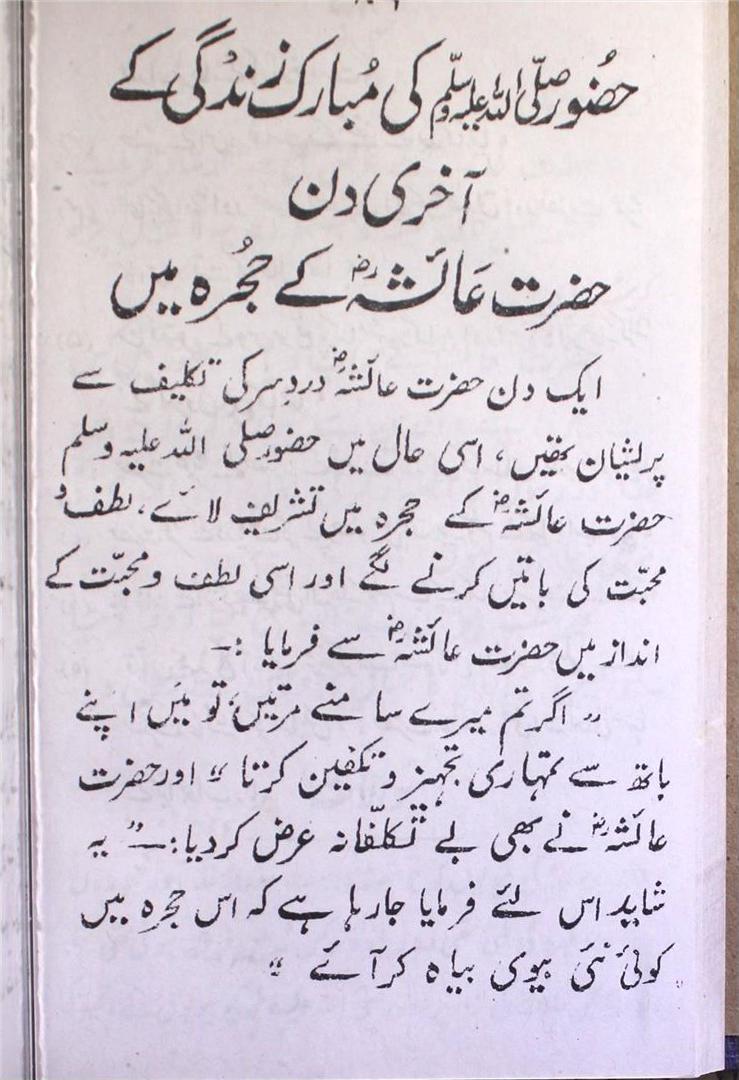 حضُور صلّی اللہ علیہ وسلّم کی مُبارک زندگی کے
آخری دن
حضرت عَائشہؓ کے حُجُرہ میں
ایک دن حضرت عائشہؓ دردِسر کی تکلیف سے
پریشان تھیں، اسی حال میں حضور صلی اللہ علیہ وسلم
حضرت عائشہؓ کے حجرہ میں تشریف لائے، لطف و
محبّت کی باتیں کرنے لگے اور اسی لطف و محبّت کے
انداز میں حضرت عائشہؓ سے فرمایا :۔
”اگر تم میرے سامنے مرتیں، تو میں اپنے
ہاتھ سے تمہاری تجہیز و تکفین کرتا“ اور حضرت
عائشہؓ نے بھی بے تکلّفانہ عرض کر دیا:۔ ”یہ
شاید اس لئے فرمایا جا رہا ہے کہ اس حجرہ میں
کوئی نئی بیوی بیاہ کر آئے“